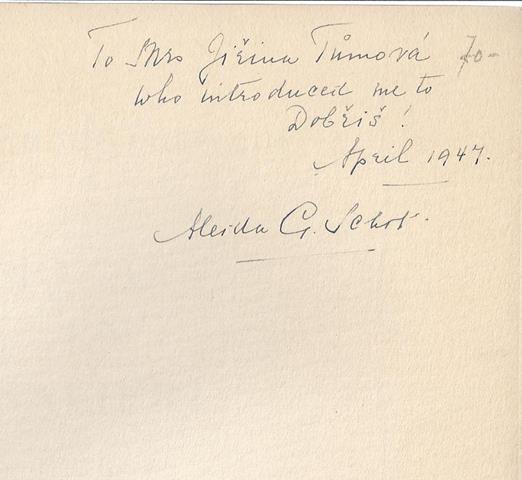 To Mrs Jiřina Tůmová 70-
who introduced me to
Dobříš!
April 1947.
Aleida G. Schot.